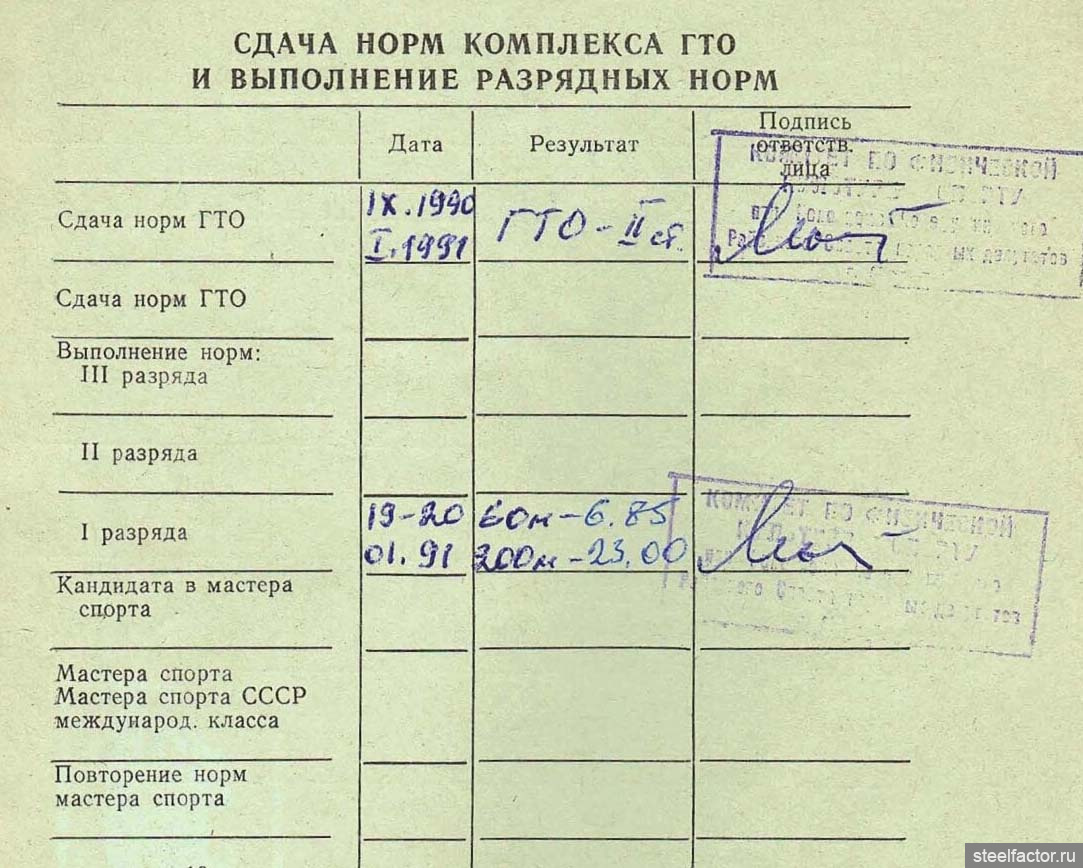 СДАЧА НОРМ КОМПЛЕКСА ГТО
И ВЫПОЛНЕНИЕ РАЗРЯДНЫХ НОРМ
Дата Результат Подпись
ответств.
лица
КОМИТЕТ ПО ФИЗИЧЕСКОЙ
Сдача норм ГТО IX.1990 ГТО - II ст.
I.1991
Сдача норм ГТО
Выполнение норм:
III разряда
II разряда
I разряда 19-20 60м-6.85
01.91 200м-23.00
КОМИТЕТ ПО ФИЗИЧЕСКОЙ
Кандидата в мастера
спорта
Мастера спорта
Мастера спорта СССР
международ. класса
Повторение норм
мастера спорта
steelfactor.ru